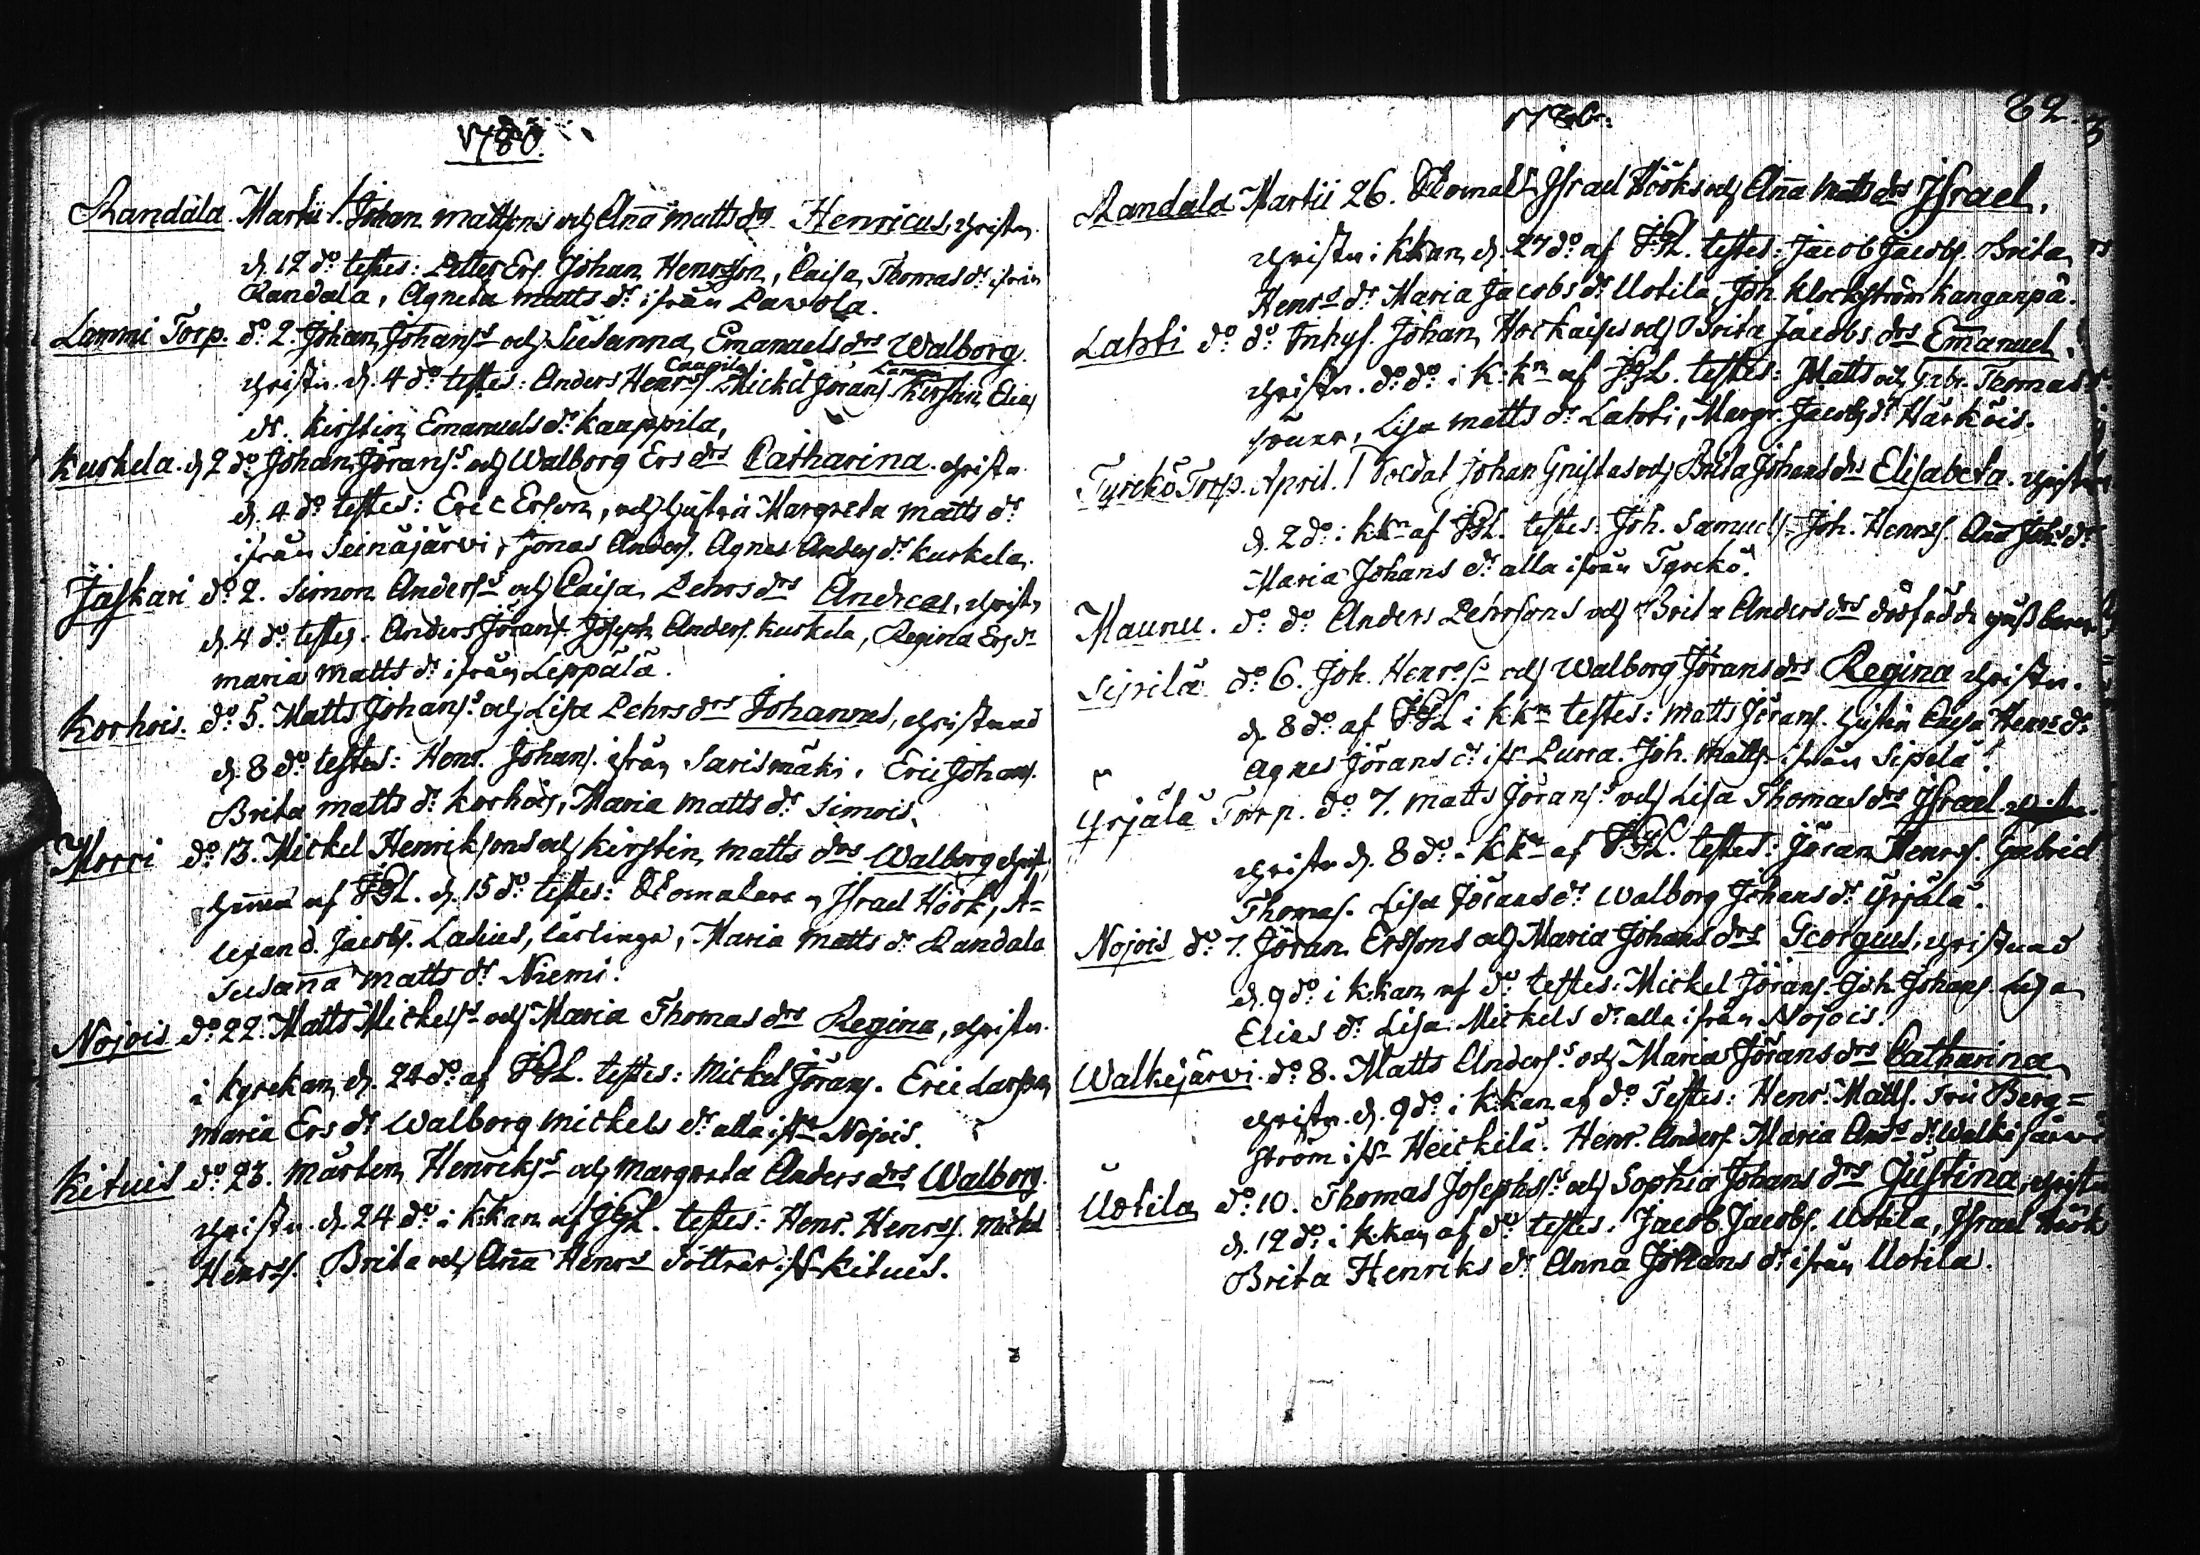 1780.
Randala. Martii 1. Johan Mattsons och Anna Matts drs Henricus, christn.
d. 12 do testes: Petter Ers. Johan Henrsson, Caisa Thomas dr ifrån
Randala, Agneta Matts dr ifrån Pavola.
Lammi Torp. do 2. Johan Johanss och Susanna Emanuels drs Walborg.
christn. d. 4 do testes: Anders Henrss. Caupila Mickel Jörans Lammi Kirstin Elias
dr. Kirstin Emanuels dr Kauppila,
Kurkela. d 2 do Johan Jöranss och Walborg Ers drs Catharina. christn
d. 4 do testes: Eric Erson, och hustru Margreta Matts dr
ifrån Seinäjärvi, Jonas Anders. Agnes Anders dr Kurkela.
Jaskari do 2. Simon Anderss och Caisa Pehrs drs Andreas, christn
d. 4 do testes. Anders Jörans Joseph Anders. Kurkela, Regina Ers dr
Maria Matts dr ifrån Leppälä.
Korhois. do 5. Matts Johanss. och Lisa Pehrs drs Johannes, christnad
d. 8 do testes: Henr. Johans. ifrån Sarismäki, Eric Johans.
Brita Matts dr Korhois, Maria Matts dr Simois.
Morri do 13. Mickel Henriksons och Kirstin Matts drs Walborg christ.
hemma af JGL. d. 15 do testes: Israel Höök, A=
lexand. Jacobs. Lasius, lärlinge, Maria Matts dr Randala
Susanna Matts dr Niemi.
Nojois do 22. Matts Mickelss och Maria Thomas drs Regina, christn.
i kyrckan d. 24 do af JGL. testes: Mickel Jörans. Eric Larsson
Maria Ers dr Walborg Mickels dr alla ifrn Nojois.
Kituis do 23. Mårten Henrikss och Margreta Anders drs Walborg.
christn. d. 24 do i k:kan af JGL. testes: Henr. Henrss. Mickel
Henrss. Brita och Anna Henrs döttrar ifr Kituis.
1780. 82.
Randala Martii 26. Israel Hööks och Anna Matts drs Israel.
christn i kkan d. 27 do af JGL. testes: Jacob Jacobs. Brita
Henrs dr Maria Jacobs dr Uotila, Joh. Klockström Kanganpä.
Lahti do do Inhys. Johan Hockaises och Brita Jacobs drs Emanuel.
christn. do do i k:kn af JGL. testes: Matts och Gabr. Thomas
söner, Lisa Matts dr Lahti, Margr. Jacobs dr Härköis.
Tyrckö Torp. April. 1 Soldat Johan Gnistas och Brita Johans drs Elisabeta. christn
d. 2 do i kkn af JGL. testes: Joh. Samuels. Joh. Henrss. Anna Johs dr
Maria Johans dr alla ifrån Tyrckö.
Maunu. do do Anders Pehrsons och Brita Anders drs dödfödde
Sipilä do 6. Joh. Henrss och Walborg Jörans drs Regina christn.
d. 8 do af JGL i kkn testes: Matts Jörans. hustru Caisa Henrs dr
Agnes Jörans dr ifr Purra. Joh. Matts. ifrån Sipilä.
Yrjälä Torp. do 7. Matts Jöranss och Lisa Thomas drs Israel.
christn d. 8 do i kkn af JGL. testes: Jöran Henrss. Gabriel
Thomas. Lisa Jörans dr Walborg Johans dr Yrjälä.
Nojois do 7. Jöran Erssons och Maria Johans drs Georgius, christnad
d. 9 do i k:kan af do testes: Mickel Jörans. Joh. Johans. Lisa
Elias dr Lisa Mickels dr alla ifrån Nojois.
Walkejärvi. do 8. Matts Anderss och Maria Jörans drs Catharina
christn. d. 9 do i k:kan af do Testes: Henr. Matts. fru Berg=
ström ifr Heickilä. Henr. Anders. Maria Ands dr Walkejärvi
Uotila do 10. Thomas Josephss och Sophia Johans drs Justina, christn
d. 12 do i k:kan af do testes: Jacob Jacobs. Uotila, Israel Höök
Brita Henriks dr Anna Johans dr ifrån Uotila.